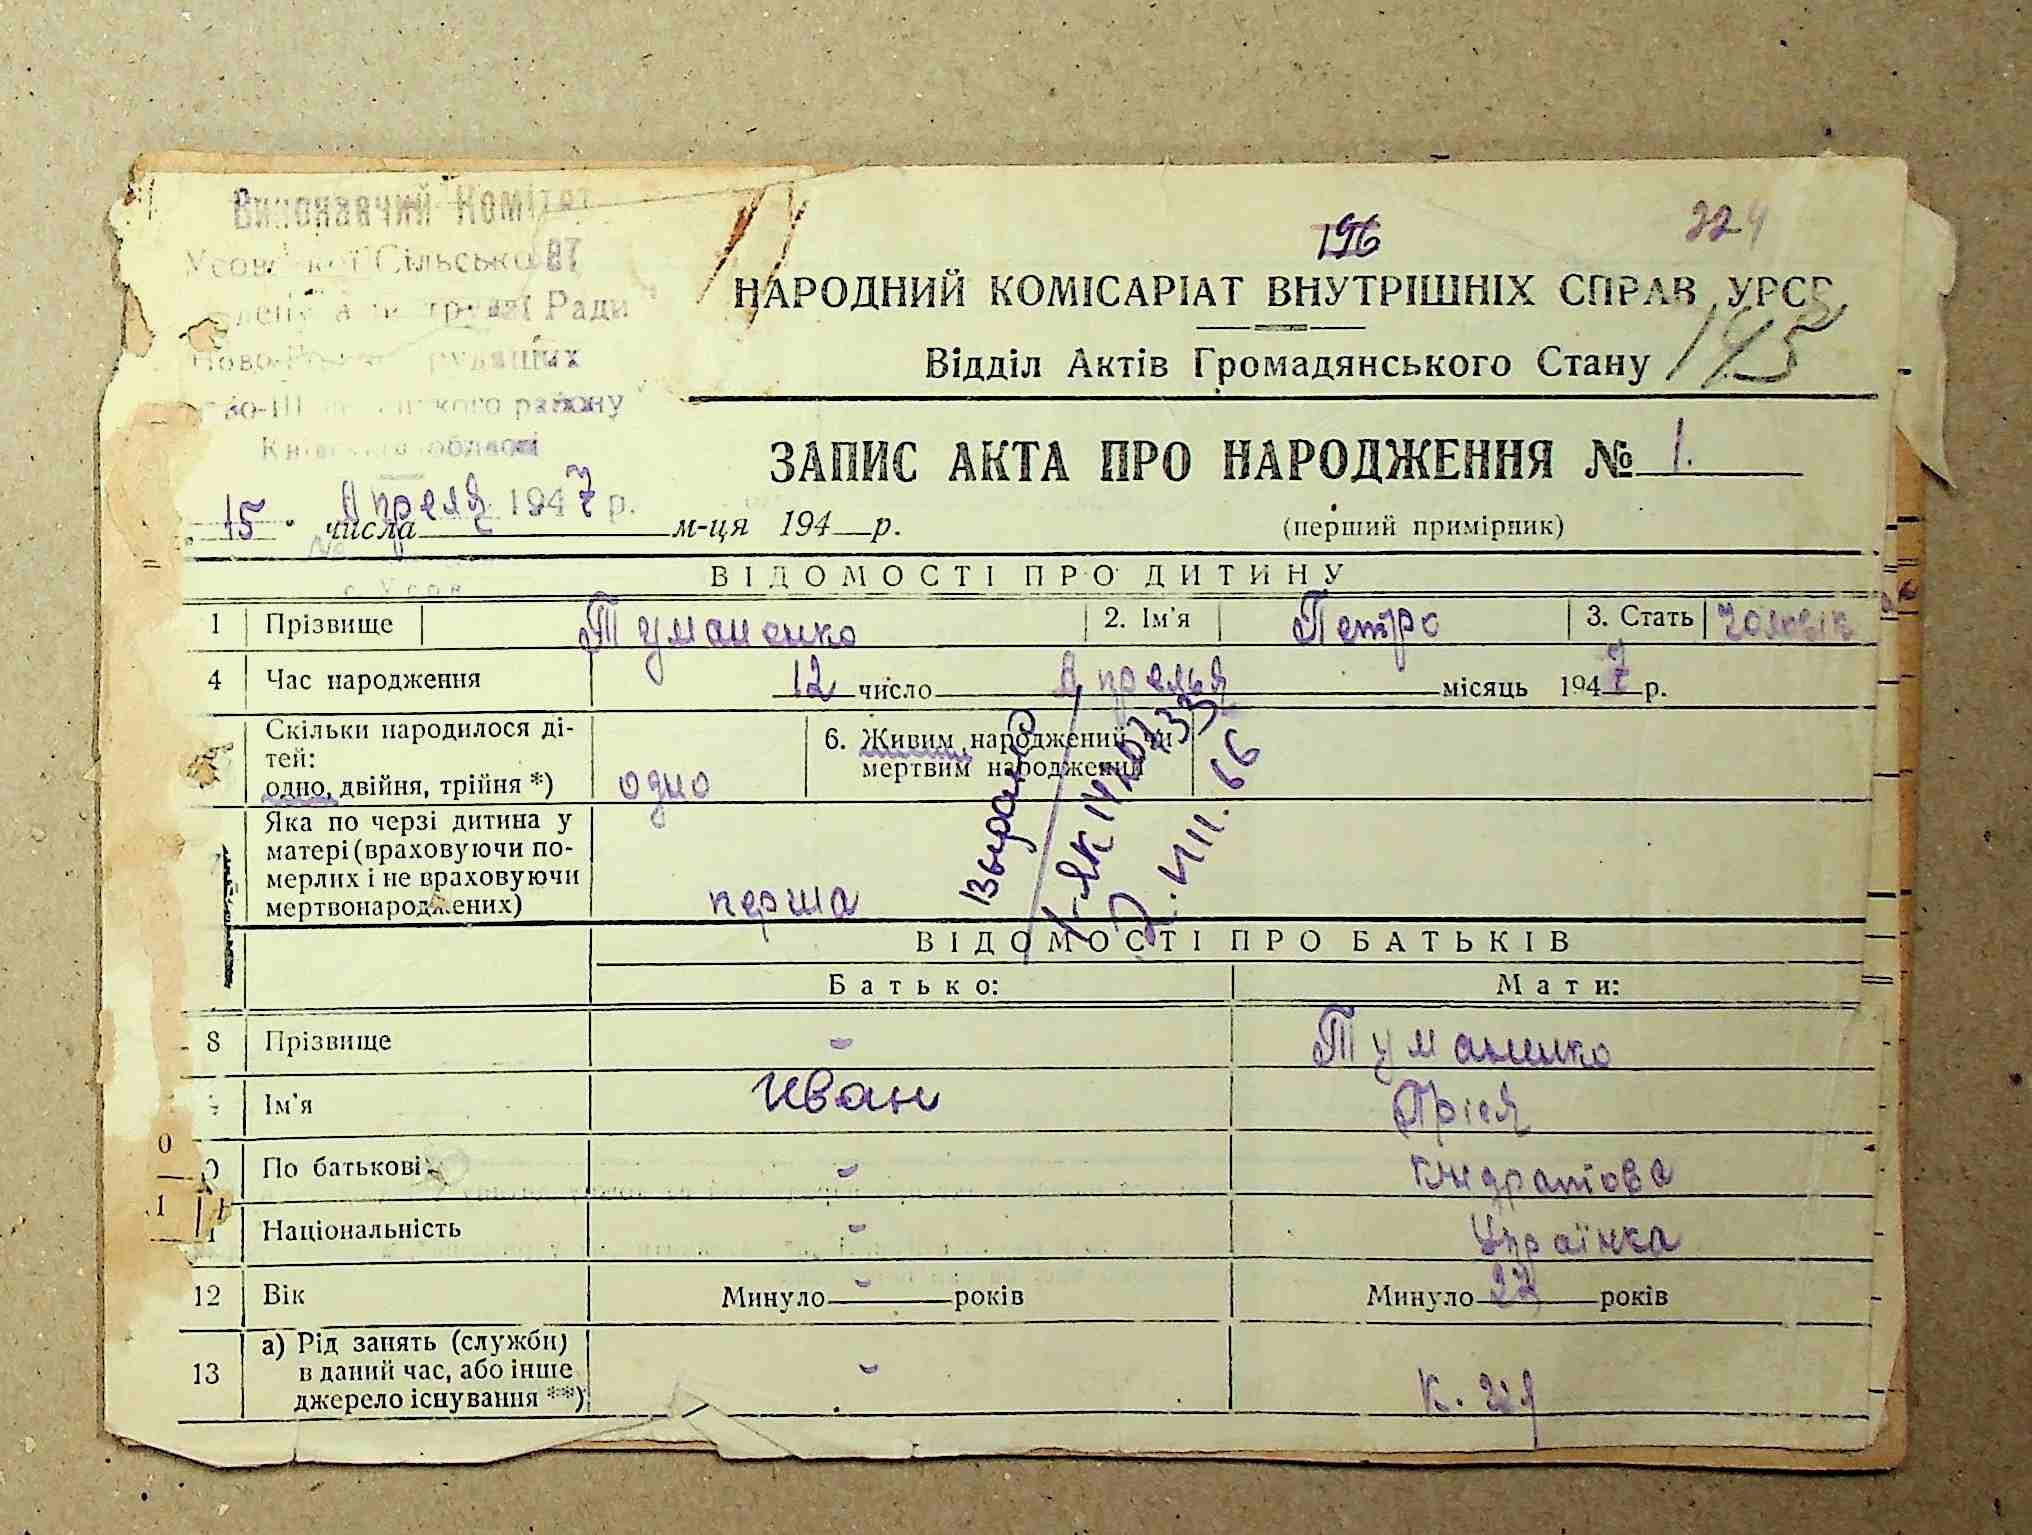 Виконавчий Комітет
Сільсько
Ради
району
області
196
224
НАРОДНИЙ КОМІСАРІАТ ВНУТРІШНІХ СПРАВ УРСР
195
Відділ Актів Громадянського Стану
ЗАПИС АКТА ПРО НАРОДЖЕННЯ № 1.
Апреля 1947 р.
15 числа м-ця 194 р. (перший примірник)
№
с. Усов
ВІДОМОСТІ ПРО ДИТИНУ
1 Прізвище Туманенко 2. Ім'я Петро 3. Стать
4 Час народження 12 число Апрелья місяць 1947 р.
Скільки народилося дітей: одно, двійня, трійня *) одно 6. Живим народжений чи мертвим народжений
Яка по черзі дитина у матері (враховуючи померлих і не враховуючи мертвонароджених) перша
VIII. 66
ВІДОМОСТІ ПРО БАТЬКІВ
Батько: Мати:
8 Прізвище - Туманенко
Ім'я Иван
По батькові -
Національність - Українка
12 Вік Минуло - років Минуло 27 років
13 а) Рід занять (служби) в даний час, або інше джерело існування **) -